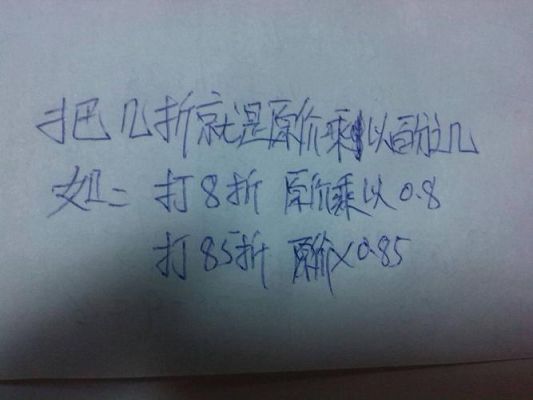 把几折就是原价乘以百分之几
如：打8折 原价乘以0.8
打85折 原价×0.85